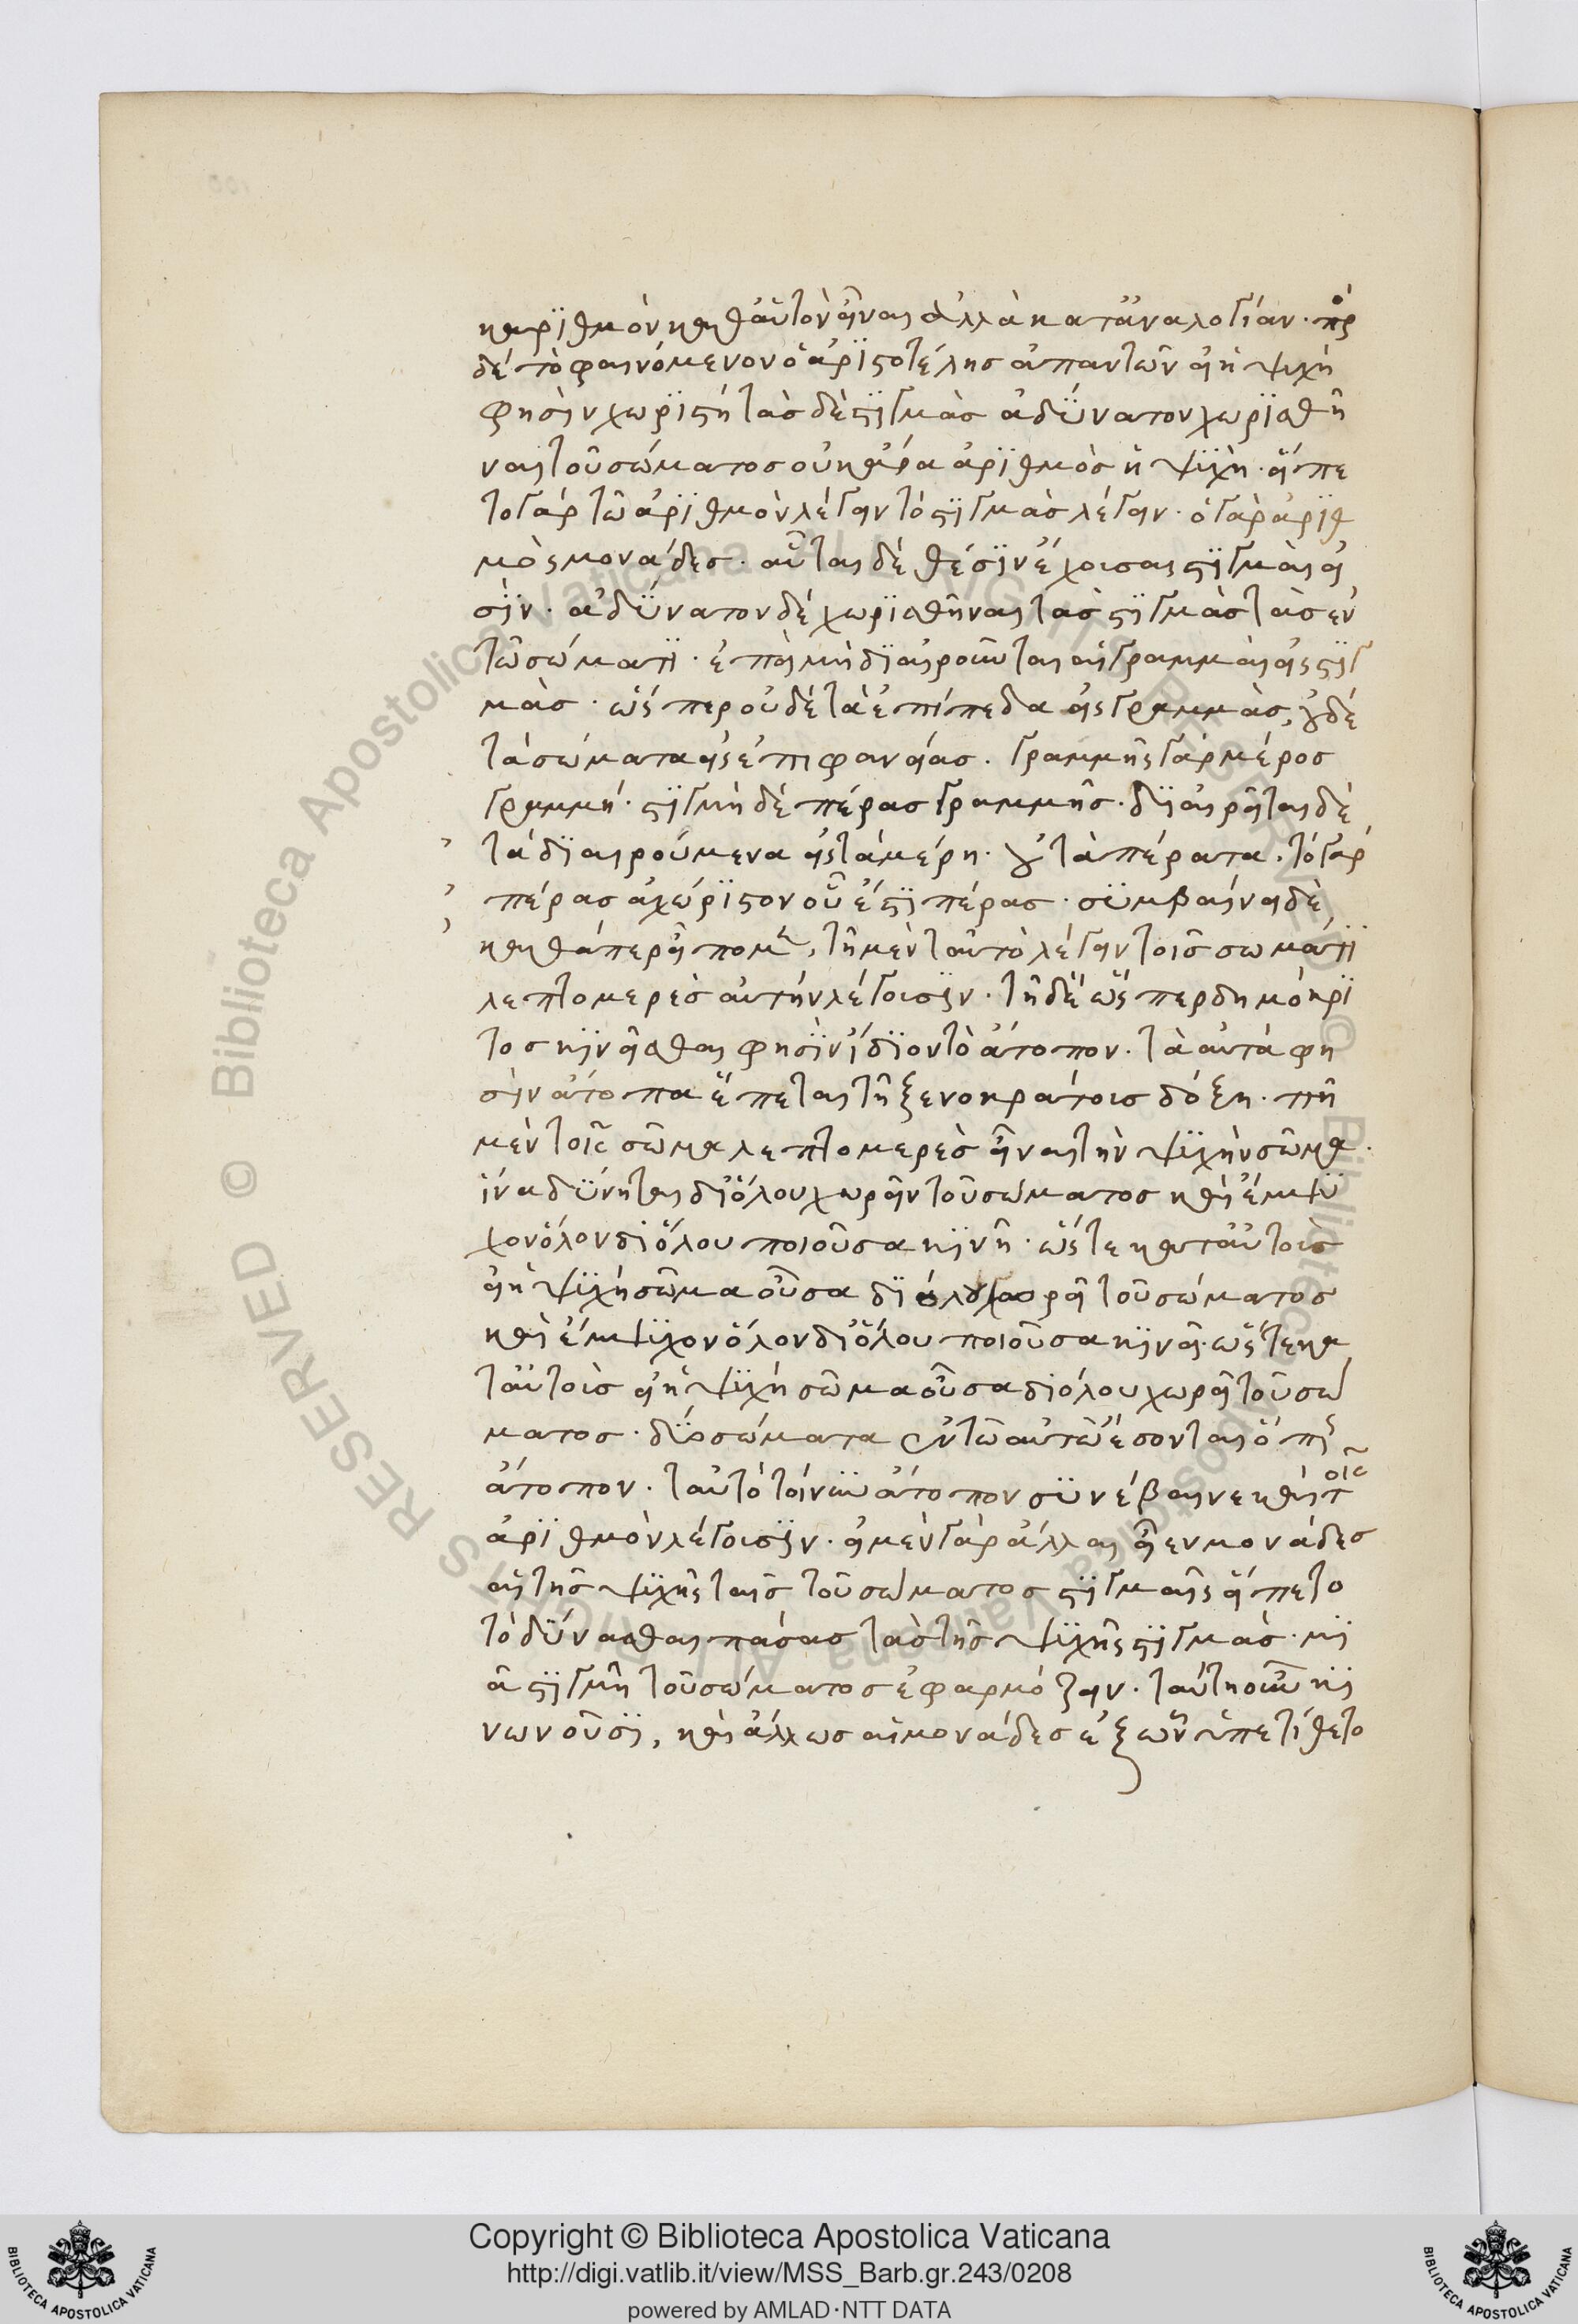 κ ἀρϊθμὸν καθ αὑτὸν εἶναι ἀλλὰ κατ ἀναλογίαν. πρὸς
δὲ τὸ φαινόμενον ὁ ἀρϊστοτέλης ἀπαντῶν εἰ ἡ ψυχὴ
φησὶν χωρϊστὴ τὰς δὲ στϊγμὰς ἀδΰνατον χωρϊσθῆ
ναι τοῦ σώματος οὐκ ἄρα ἀρϊθμὸς ἡ ψϋχὴ. εἵπε
το γὰρ τῶ ἀρϊθμὸν λέγειν τὸ στϊγμὰς λέγειν. ὁ γὰρ ἀρϊθ
μὸς μονάδες. αὗται δὲ θέσϊν ἔχουσαι στϊγμαὶ εἰ
σϊν. ἀδΰνατον δὲ χωρϊσθῆναι τὰς στϊγμὰς τὰς ἐν
τῶ σώματϊ. ἐπεὶ μὴ δϊαιροῦνται αἱ γραμμαὶ εἰς στϊγ
μὰς. ὥσπερ οὐδὲ τὰ ἐπίπεδα εἰς γραμμὰς, οὐδὲ
τὰ σώματα εἰς ἐπιφανείας. γραμμῆς γὰρ μέρος
γραμμή. στϊγμὴ δὲ πέρας γραμμῆς. δϊαιρεῖται δὲ
τὰ δϊαιρούμενα εἰς τὰ μέρη. οὐ τὰ πέρατα. τὸ γὰρ
πέρας ἀχώρϊστον οὗ ἐστϊ πέρας. σϋμβαίνει δὲ,
καθάπερ εἴπομεν, τῆ μὲν ταὐτὸ λέγειν τοῖς σωμάτϊ
λεπτομερὲς αὐτὴν λέγουσϊν. τῆ δὲ ὥσπερ δημόκρϊ
τος κϊνεῖσθαι φησὶν ἴδϊον τὸ ἄτοπον. τὰ αὐτά φη
σϊν ἄτοπα ἕπεται τῆ ξενοκράτους δόξη. πῆ
μὲν τοῖς σῶμα λεπτομερὲς εἶναι τὴν ψϋχὴν σῶμα.
ἵνα δΰνηται δϊόλου χωρεῖν τοῦ σώματος καὶ ἔμψϋ
χον ὅλον δϊόλου ποιοῦσα κϊνῆ. ὥστε κατ αὐτοὺς
εἰ ἡ ψϋχὴ σῶμα οὖσα δϊόλου χωρεῖ τοῦ σώματος
καὶ ἔμψϋχον ὅλον δϊόλου ποιοῦσα κϊνεῖ. ὥστε κα
τ αὐτοὺς εἰ ἡ ψϋχὴ σῶμα οὖσα δϊόλου χωρεῖ τοῦ σώ
ματος. δΰο σώματα ἐν τῶ αὐτῶ ἔσονται ὅπερ
ἄτοπον. ταὐτὸ τοίνϋν ἄτοπον σϋνέβαινε καὶ τοῖς
ἀρϊθμὸν λέγουσϊν. εἰ μὲν γὰρ ἄλλαι εἶεν μονάδες
αἱ τῆς ψϋχῆς ταῖς τοῦ σώματος στϊγμαῖς εἵπετο
τὸ δΰνασθαι πάσας τὰς τῆς ψϋχῆς στϊγμὰς. μϊ
ᾶ στϊγμῆ τοῦ σώματος ἐφαρμόζειν. ταύτη οὖν κϊ
νων οὖσϊ, καὶ ἄλλως αἱ μονάδες ἐξ ὧν ὑπετίθετο
Copyright © Biblioteca Apostolica Vaticana
http://digi.vatlib.it/view/MSS_Barb.gr.243/0208
powered by AMLAD·NTT DATA